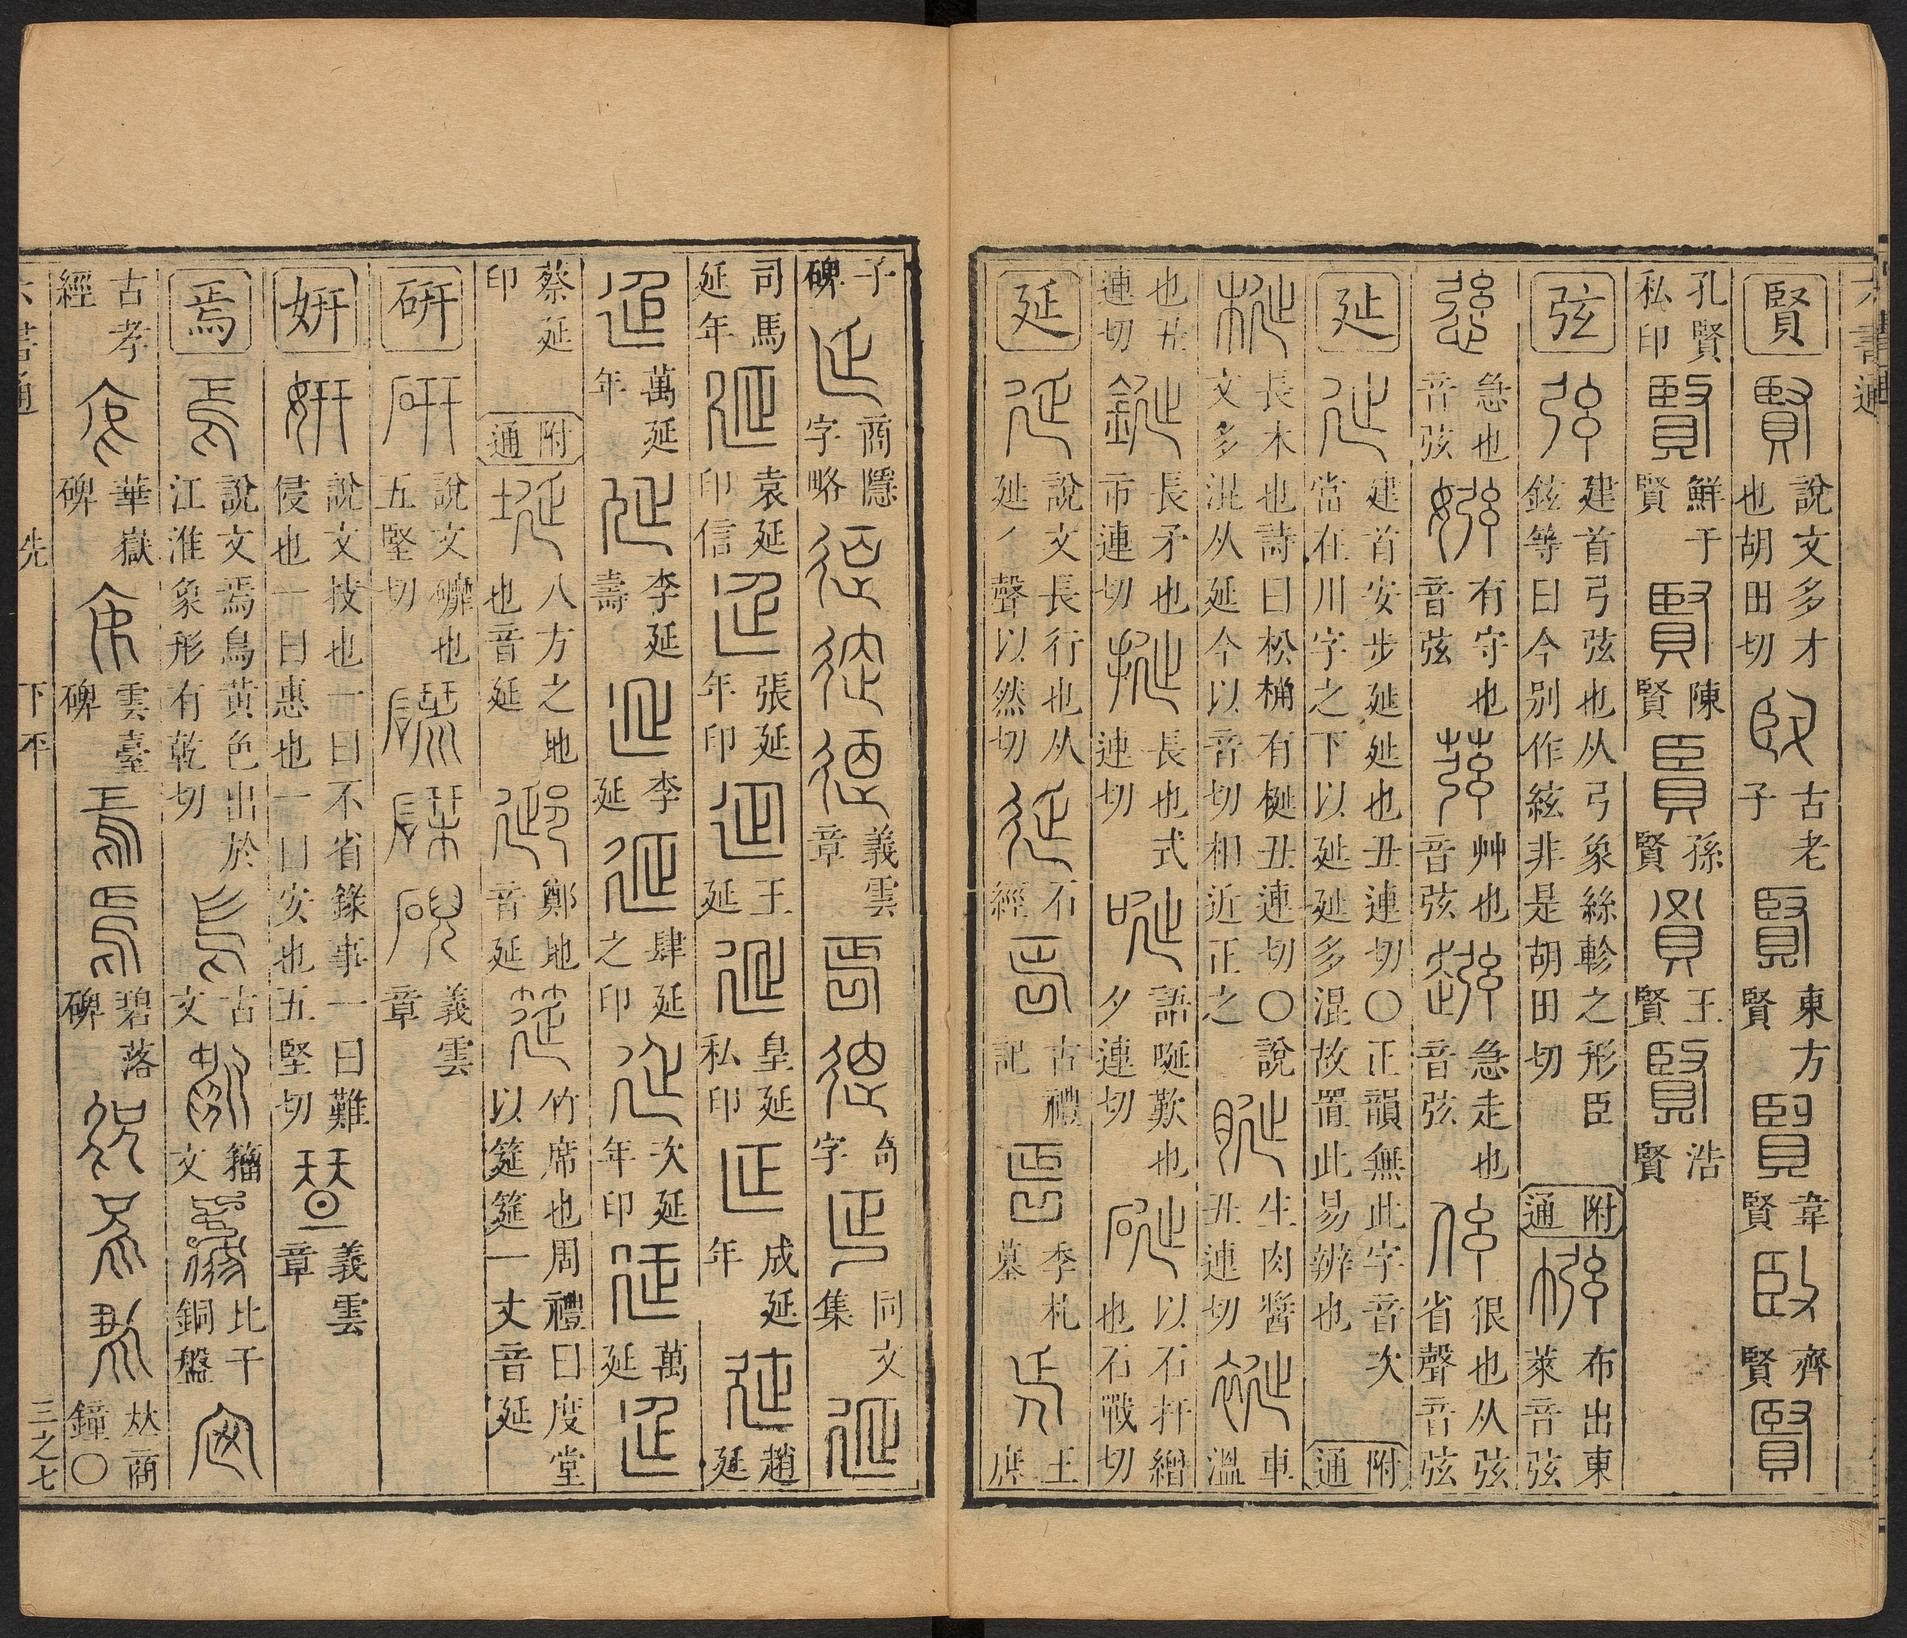 六書通
賢 賢 說文多才也胡田切 臤 古老子 賢 東方賢 賢 韋賢 臤 齊賢 賢
孔賢私印 賢 鮮于賢 賢 陳賢 賢 孫賢 賢 王賢 賢 浩賢
弦 弦 建首弓弦也从弓象絲軫之形臣鉉等曰今別作絃非是胡田切 附通 布出東萊音弦
急也音弦 有守也音弦 艸也音弦 急走也音弦 佷也从弦省聲音弦
延 延 建首安步延延也丑連切〇正韻無此字音次當在川字之下以延延多混故置此易辨也 附通
梴 長木也詩曰松桷有梴丑連切〇說文多混从延今以音切相近正之 生肉醬也丑連切 車溫
也丑連切 鋋 長矛也市連切 挻 長也式連切 唌 語唌歎也夕連切 硟 以石扞繒也石戰切
延 延 說文長行也从延丿聲以然切 延 石經 古禮記 季札墓 王庶
子碑 延 商隱字略 義雲章 奇字 同文集
司馬延年 延 袁延印信 延 張延年印 延 王延 延 皇延私印 延 成延年 延 趙延
延 萬延年 延 李延壽 延 李延 延 肆延之印 延 次延年印 延 萬延 延
蔡延印 附通 埏 八方之地也音延 郔 鄭地音延 筵 竹席也周禮曰度堂以筵筵一丈音延
研 研 說文䃺也五堅切 義雲章
妍 妍 說文技也一曰不省錄事一曰難侵也一曰惠也一曰安也五堅切 義雲章
焉 焉 說文焉鳥黃色出於江淮象形有乾切 古文 籀文 比干銅盤
古孝經 華嶽碑 雲臺碑 碧落碑 商鐘〇
六書通 先 下平 三之七